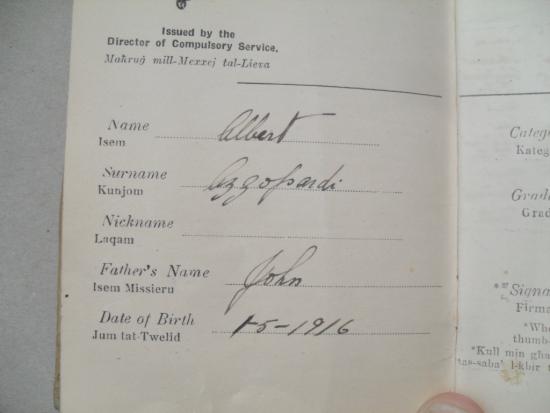 Issued by the
Director of Compulsory Service.
Maħruġ mill-Mexxej tal-Lieva
Name Albert
Isem
Surname Azzopardi
Kunjom
Nickname
Laqam
Father's Name John
Isem Missieru
Date of Birth 1-5-1916
Jum tat-Twelid
Categ
Kateg
Grad
Grad
*Signa
Firma
*Whe
thumb-
*Kull min gha
tas-saba' l-kbir t